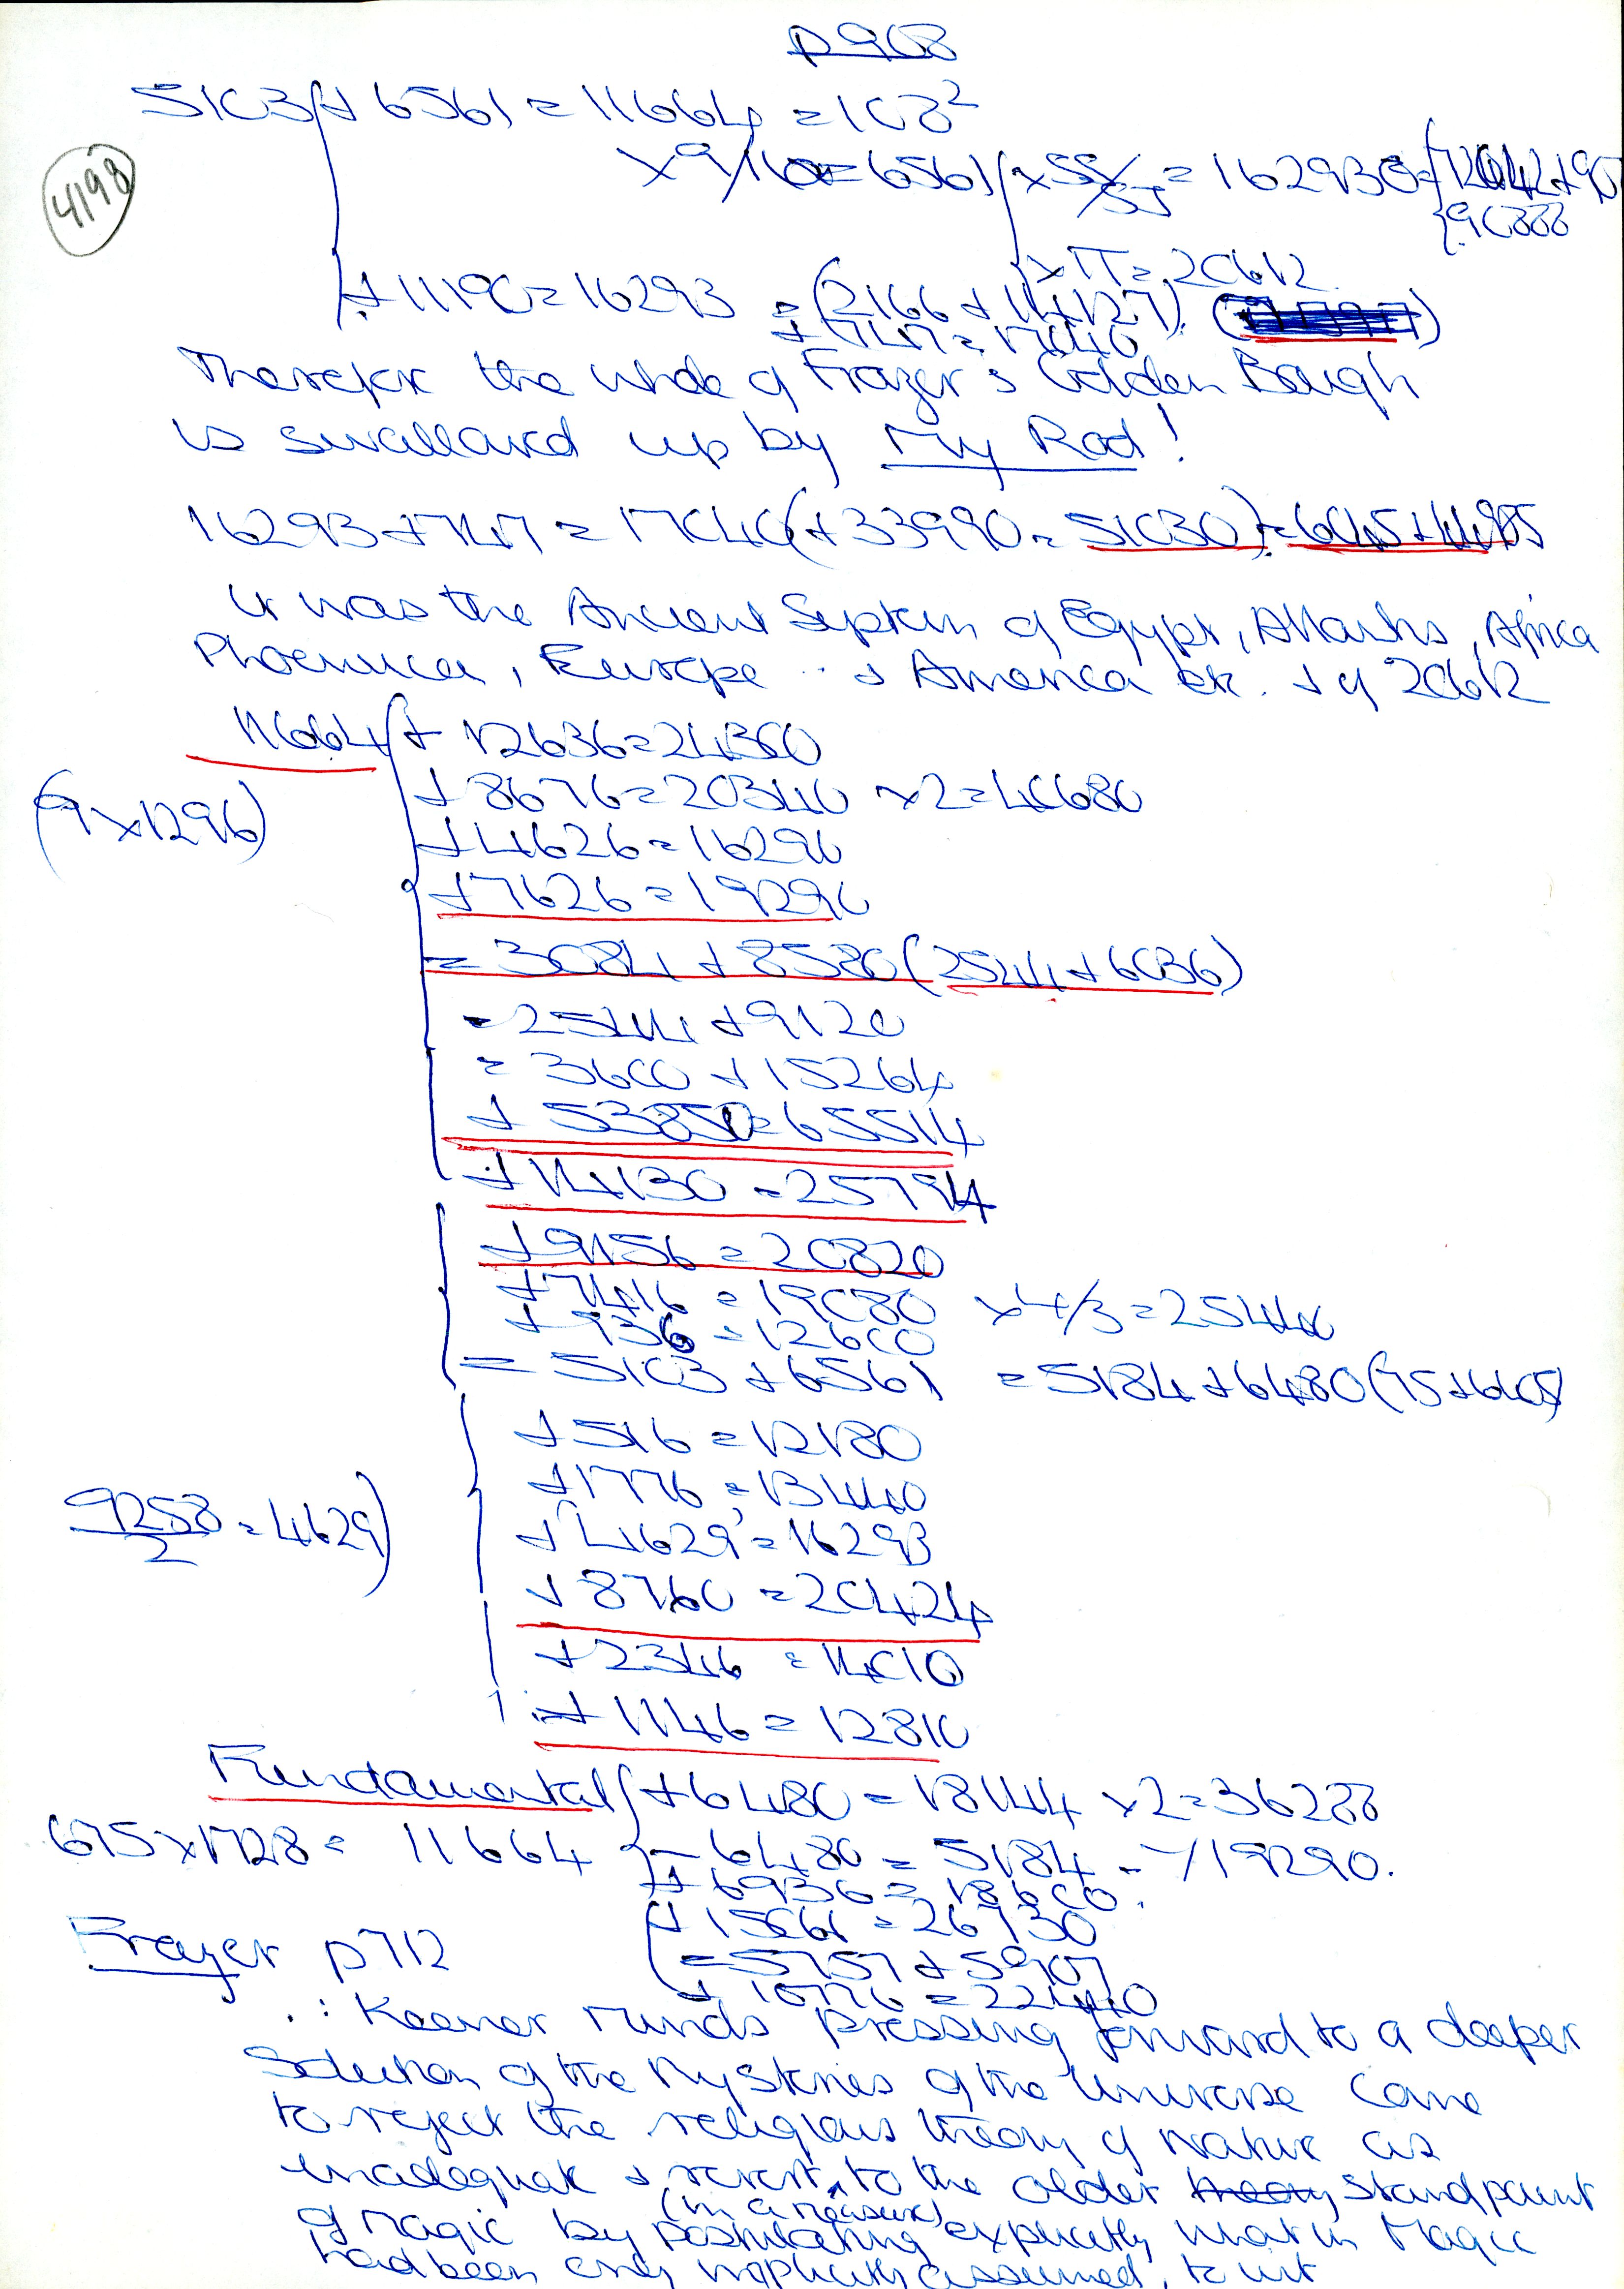 p 908
5103 + 6561 = 11664 = 108²
4198
x 9/16 = 6561 x = 162930
{90888
x π = 20612
+ 11190 = 16293 = (2166 + 14127)
+ 747 = 17040
Therefore the whole of Frazer's Golden Bough
is swallowed up by My Rod!
16293 + 747 = 17040 (+ 33990 = 51030) = 6045 + 44985
It was the Ancient System of Egypt, Atlantis, Africa
Phoenicia, Europe .. + America etc. + of 20612
11664 + 12636 = 24300
+ 8676 = 20340 x 2 = 40680
(9 x 1296)
+ 4626 = 16290
+ 7626 = 19290
= 3084 + 8580 (2544 + 6036)
= 2544 + 9120
= 3600 + 15264
+ 53850 = 65514
+ 14130 = 25794
+ 9156 = 20820
+ 7416 = 19080 x 4/3 = 25440
+ 936 = 12600
= 5103 + 6561 = 5184 + 6480 (75 + 6405)
+ 516 = 12180
+ 1776 = 13440
9258/2 = 4629)
+ '4629' = 16293
+ 8760 = 20424
+ 2346 = 14010
+ 1146 = 12810
Fundamental { + 6480 = 18144 x 2 = 36288
675 x 1728 = 11664 } - 6480 = 5184 - 719290.
+ 6936 = 18600.
+ 15066 = 26730
Frazer p 712
= 5757 + 5907
+ 10776 = 22440
∴ Keener minds pressing forward to a deeper
Solution of the Mysteries of the Universe came
to reject the religious theory of Nature as
inadequate & revert to the older theory standpoint
(in a measure)
of Magic by postulating explicitly what in Magic
had been only implicitly assumed, to wit